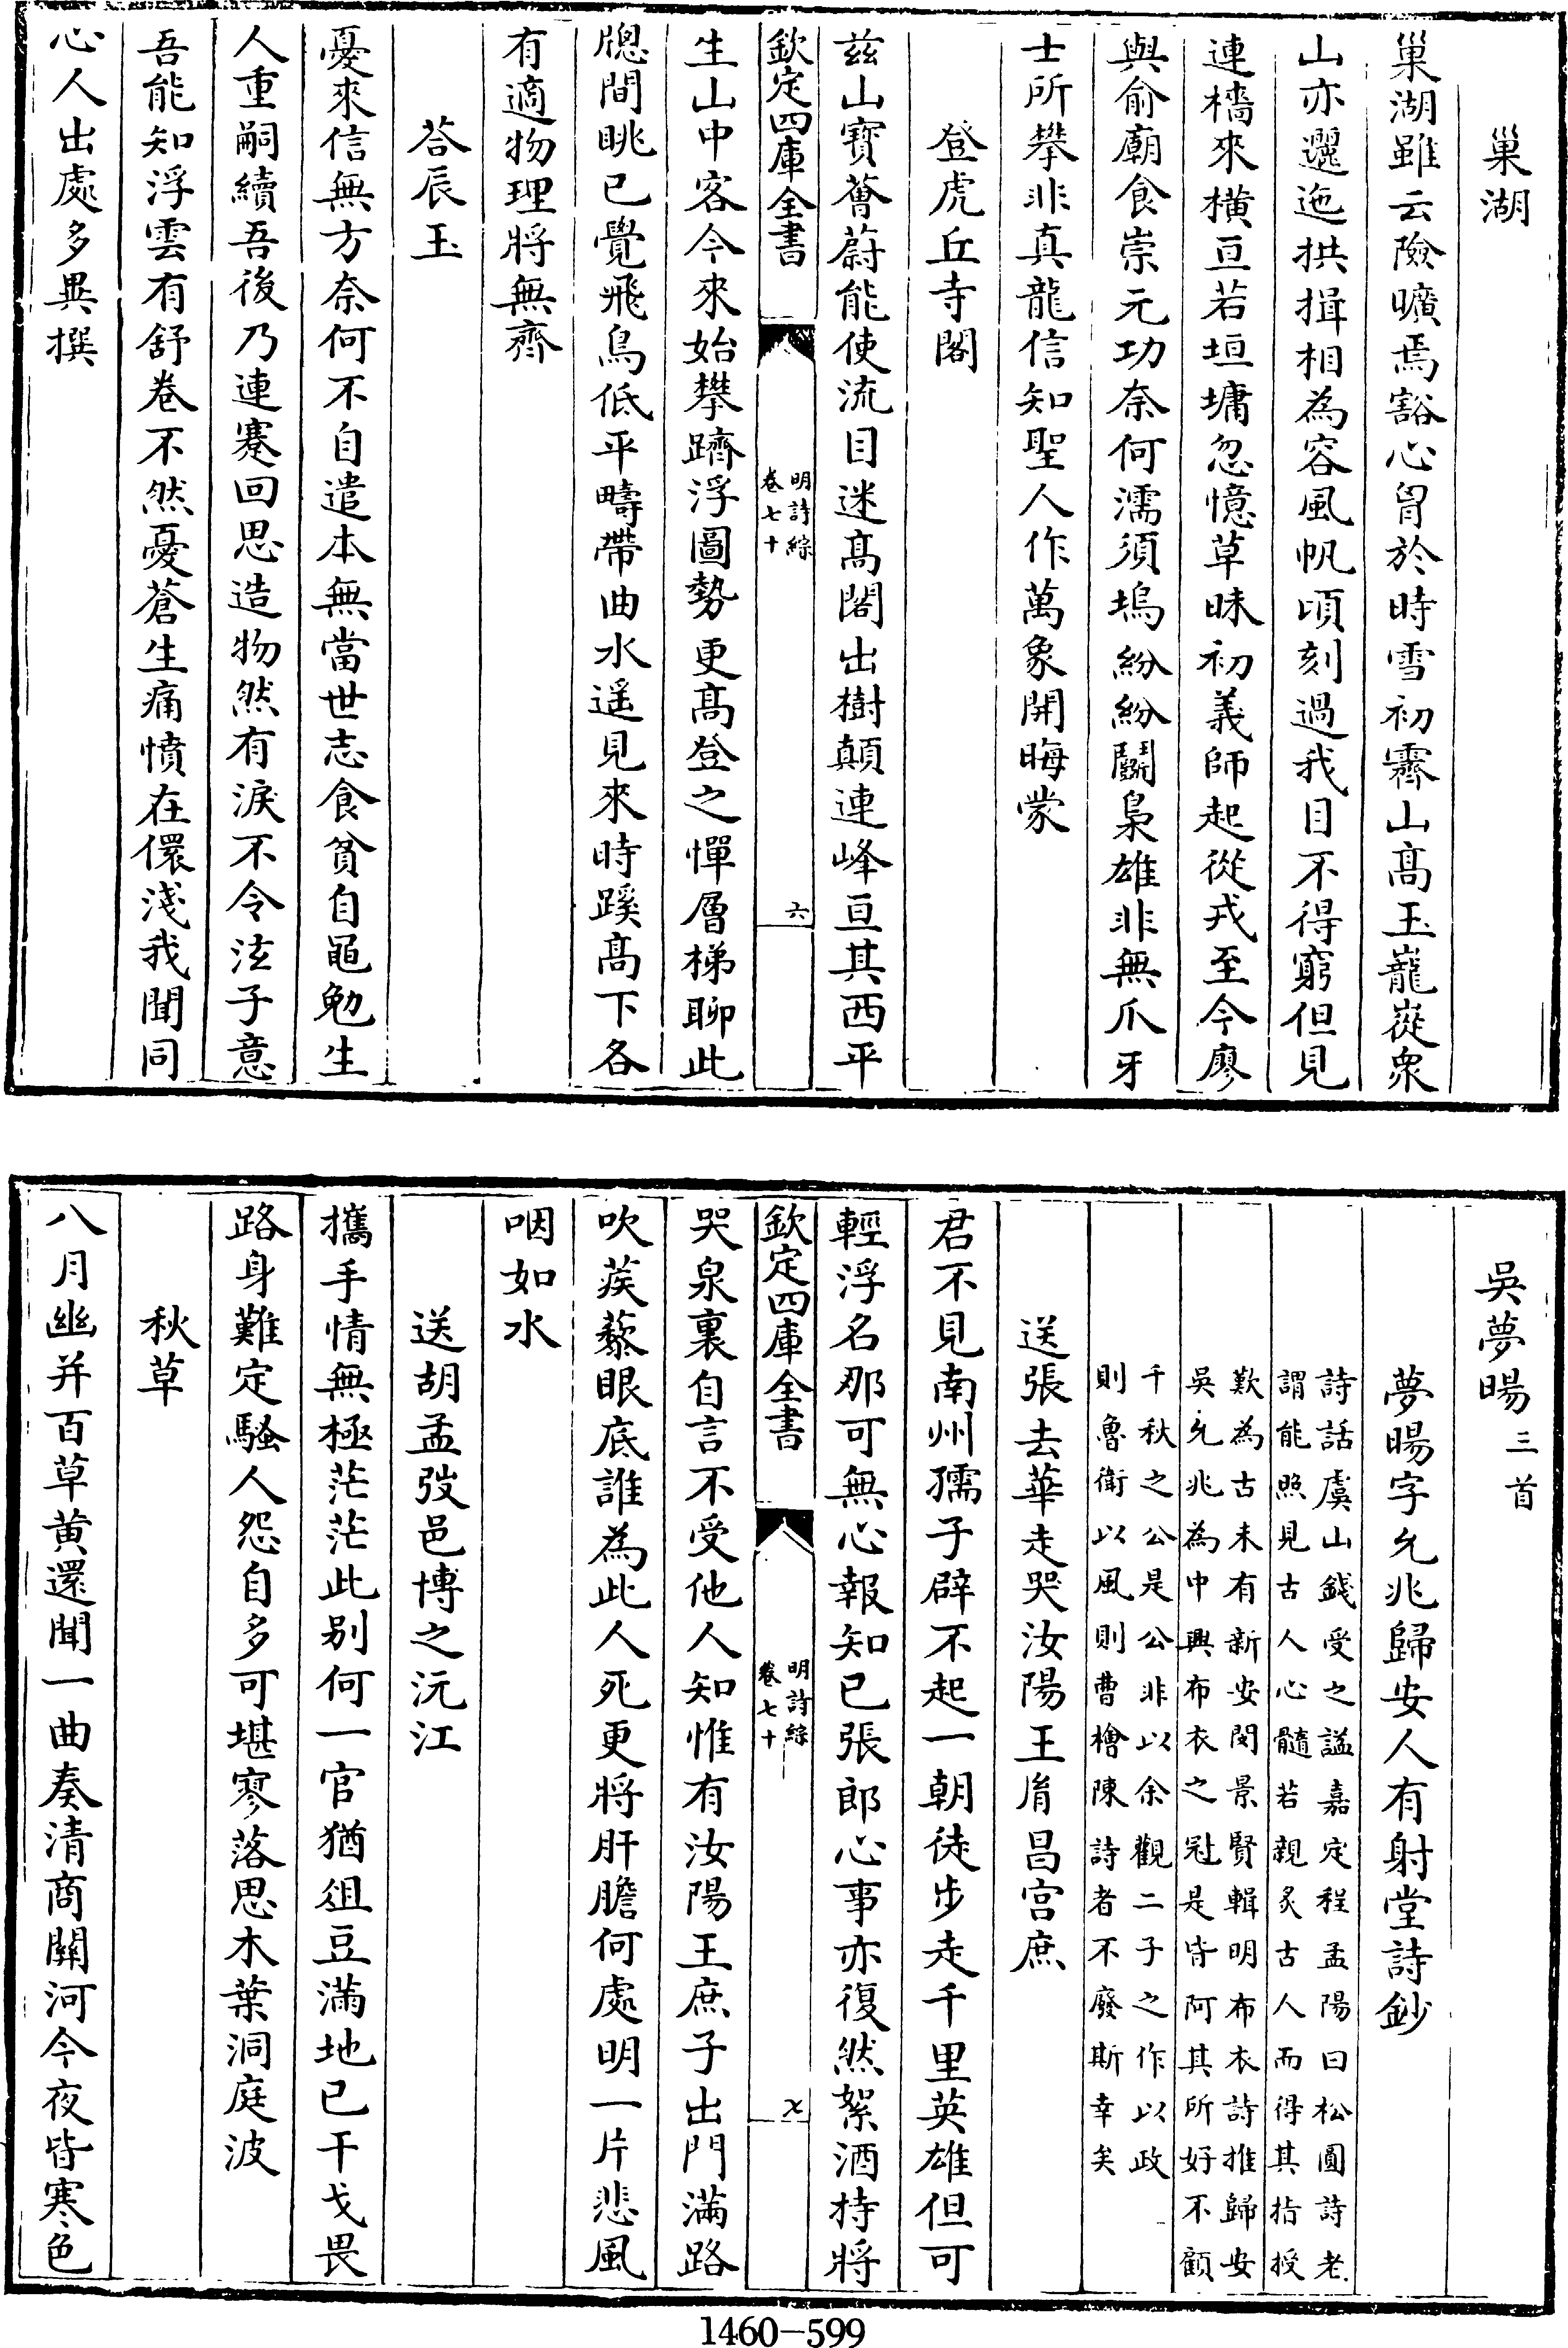 巢湖
巢湖雖云險曠焉豁心胷於時雪初霽山髙玉巃嵸衆
山亦邐迤拱揖相為容風帆頃刻過我目不得窮但見
連檣來橫亘若垣墉忽憶草昧初義師起從戎至今廖
與俞廟食崇元功奈何濡須塢紛紛鬭梟雄非無爪牙
士所攀非真龍信知聖人作萬象開晦蒙
登虎丘寺閣
兹山寶薈蔚能使流目迷髙閣出樹顛連峰亘其西平
欽定四庫全書
明詩綜
卷七十
六
生山中客今來始攀躋浮圖勢更髙登之憚層梯聊此
牕間眺已覺飛鳥低平疇帶曲水遥見來時蹊髙下各
有適物理將無齊
荅辰玉
憂來信無方奈何不自遣本無當世志食貧自黽勉生
人重嗣續吾後乃連蹇回思造物然有淚不令泫子意
吾能知浮雲有舒卷不然憂蒼生痛憤在儇淺我聞同
心人出處多異撰
吳夢暘三首
夢暘字允兆歸安人有射堂詩鈔
詩話虞山錢受之謚嘉定程孟陽曰松圓詩老
謂能照見古人心髓若親炙古人而得其指授
歎為古未有新安閔景賢輯明布衣詩推歸安
吳允兆為中興布衣之冠是皆阿其所好不顧
千秋之公是公非以余觀二子之作以政
則魯衛以風則曹檜陳詩者不廢斯幸矣
送張去華走哭汝陽王㣧昌宫庶
君不見南州孺子辟不起一朝徒步走千里英雄但可
輕浮名那可無心報知已張郎心事亦復然絮酒持將
欽定四庫全書
明詩綜
卷七十
七
哭泉裏自言不受他人知惟有汝陽王庶子出門滿路
吹蒺藜眼底誰為此人死更將肝膽何處明一片悲風
咽如水
送胡孟弢邑博之沅江
攜手情無極茫茫此别何一官猶俎豆滿地已干戈畏
路身難定騷人怨自多可堪寥落思木葉洞庭波
秋草
八月幽并百草黄還聞一曲奏清商關河今夜皆寒色
1460-599